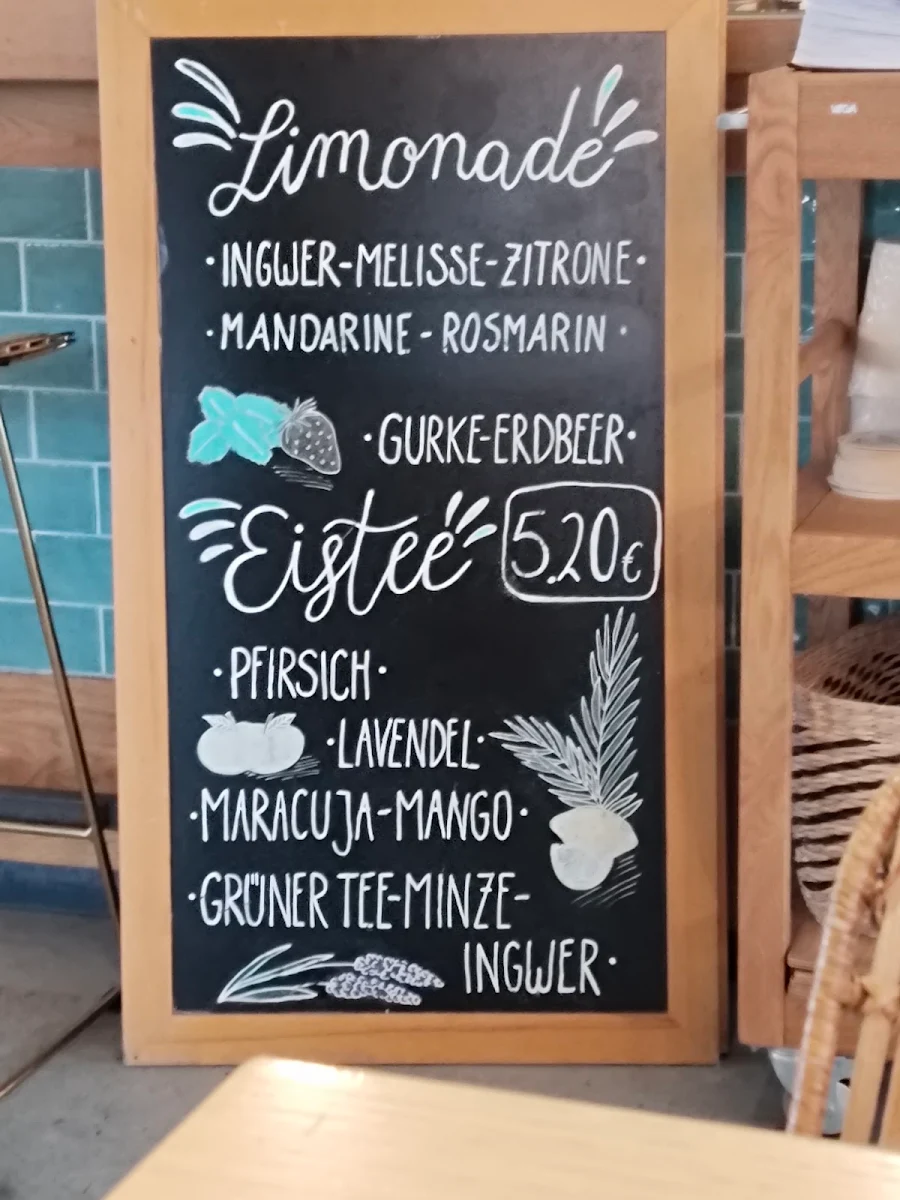 Limonade
·INGWER-MELISSE-ZITRONE·
·MANDARINE-ROSMARIN·
·GURKE-ERDBEER·
Eistee 5.20€
·PFIRSICH·
·LAVENDEL·
·MARACUJA-MANGO·
·GRÜNER TEE-MINZE-
INGWER·